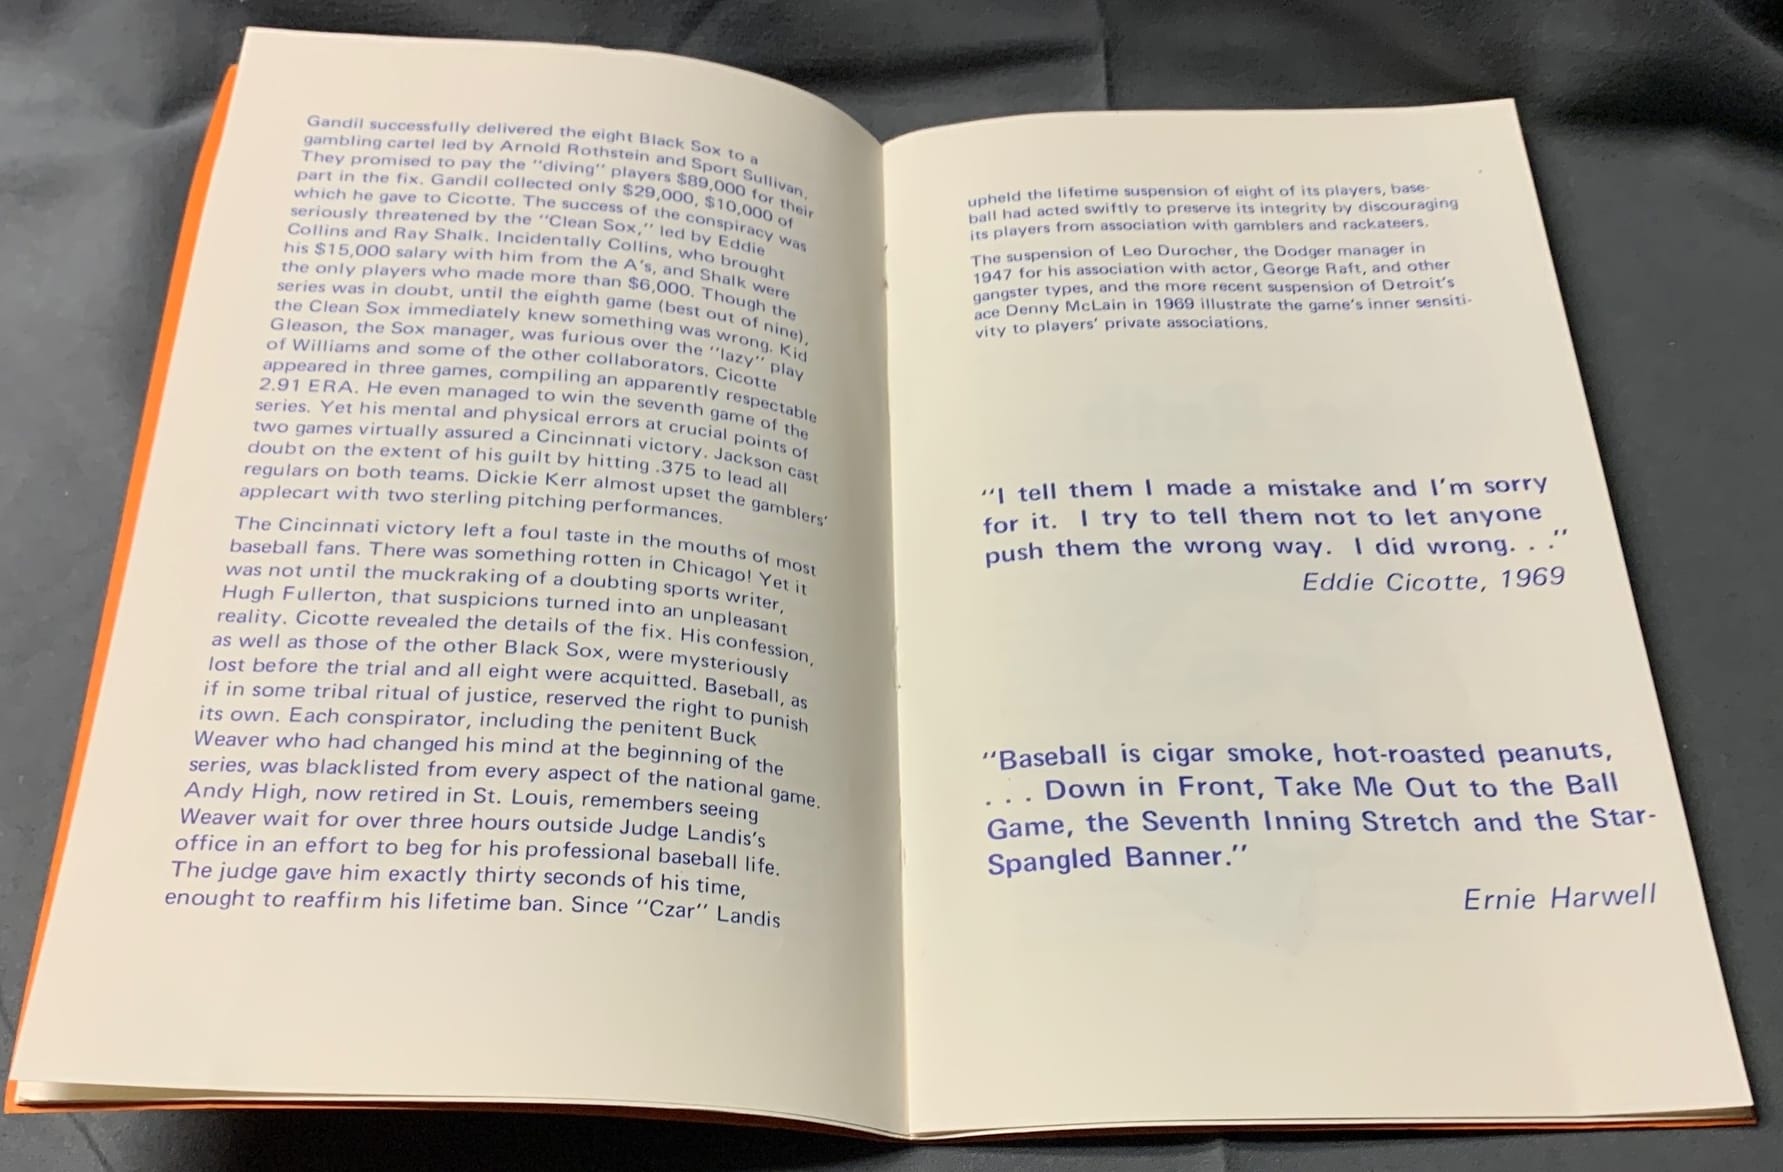 Gandil successfully delivered the eight Black Sox to a
gambling cartel led by Arnold Rothstein and Sport Sullivan.
They promised to pay the "diving" players $89,000 for their
part in the fix. Gandil collected only $29,000, $10,000 of
which he gave to Cicotte. The success of the conspiracy was
seriously threatened by the "Clean Sox," led by Eddie
Collins and Ray Shalk. Incidentally Collins, who brought
his $15,000 salary with him from the A's, and Shalk were
the only players who made more than $6,000. Though the
series was in doubt, until the eighth game (best out of nine),
the Clean Sox immediately knew something was wrong. Kid
Gleason, the Sox manager, was furious over the "lazy" play
of Williams and some of the other collaborators. Cicotte
appeared in three games, compiling an apparently respectable
2.91 ERA. He even managed to win the seventh game of the
series. Yet his mental and physical errors at crucial points of
two games virtually assured a Cincinnati victory. Jackson cast
doubt on the extent of his guilt by hitting .375 to lead all
regulars on both teams. Dickie Kerr almost upset the gamblers'
applecart with two sterling pitching performances.
The Cincinnati victory left a foul taste in the mouths of most
baseball fans. There was something rotten in Chicago! Yet it
was not until the muckraking of a doubting sports writer,
Hugh Fullerton, that suspicions turned into an unpleasant
reality. Cicotte revealed the details of the fix. His confession,
as well as those of the other Black Sox, were mysteriously
lost before the trial and all eight were acquitted. Baseball, as
if in some tribal ritual of justice, reserved the right to punish
its own. Each conspirator, including the penitent Buck
Weaver who had changed his mind at the beginning of the
series, was blacklisted from every aspect of the national game.
Andy High, now retired in St. Louis, remembers seeing
Weaver wait for over three hours outside Judge Landis's
office in an effort to beg for his professional baseball life.
The judge gave him exactly thirty seconds of his time,
enought to reaffirm his lifetime ban. Since "Czar" Landis
upheld the lifetime suspension of eight of its players, base-
ball had acted swiftly to preserve its integrity by discouraging
its players from association with gamblers and rackateers.
The suspension of Leo Durocher, the Dodger manager in
1947 for his association with actor, George Raft, and other
gangster types, and the more recent suspension of Detroit's
ace Denny McLain in 1969 illustrate the game's inner sensiti-
vity to players' private associations.
"I tell them I made a mistake and I'm sorry
for it. I try to tell them not to let anyone
push them the wrong way. I did wrong. . ."
Eddie Cicotte, 1969
"Baseball is cigar smoke, hot-roasted peanuts,
. . . Down in Front, Take Me Out to the Ball
Game, the Seventh Inning Stretch and the Star-
Spangled Banner."
Ernie Harwell